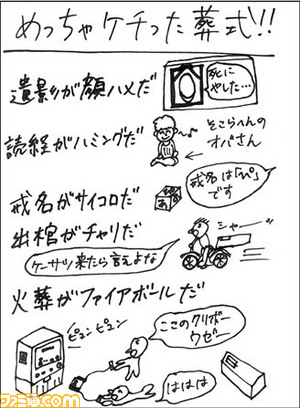 めっちゃケチった葬式!!
遺影が顔ハメだ
死にやした…
読経がハミングだ
そこらへんの
オバさん
戒名がサイコロだ
あ
戒名は「ぺ」
です
出棺がチャリだ
シャーッ
ケーサツ来たら言えよな
火葬がファイアボールだ
ピュンピュン
ここのクリボー
ウゼー
ははは
ファミ通.com